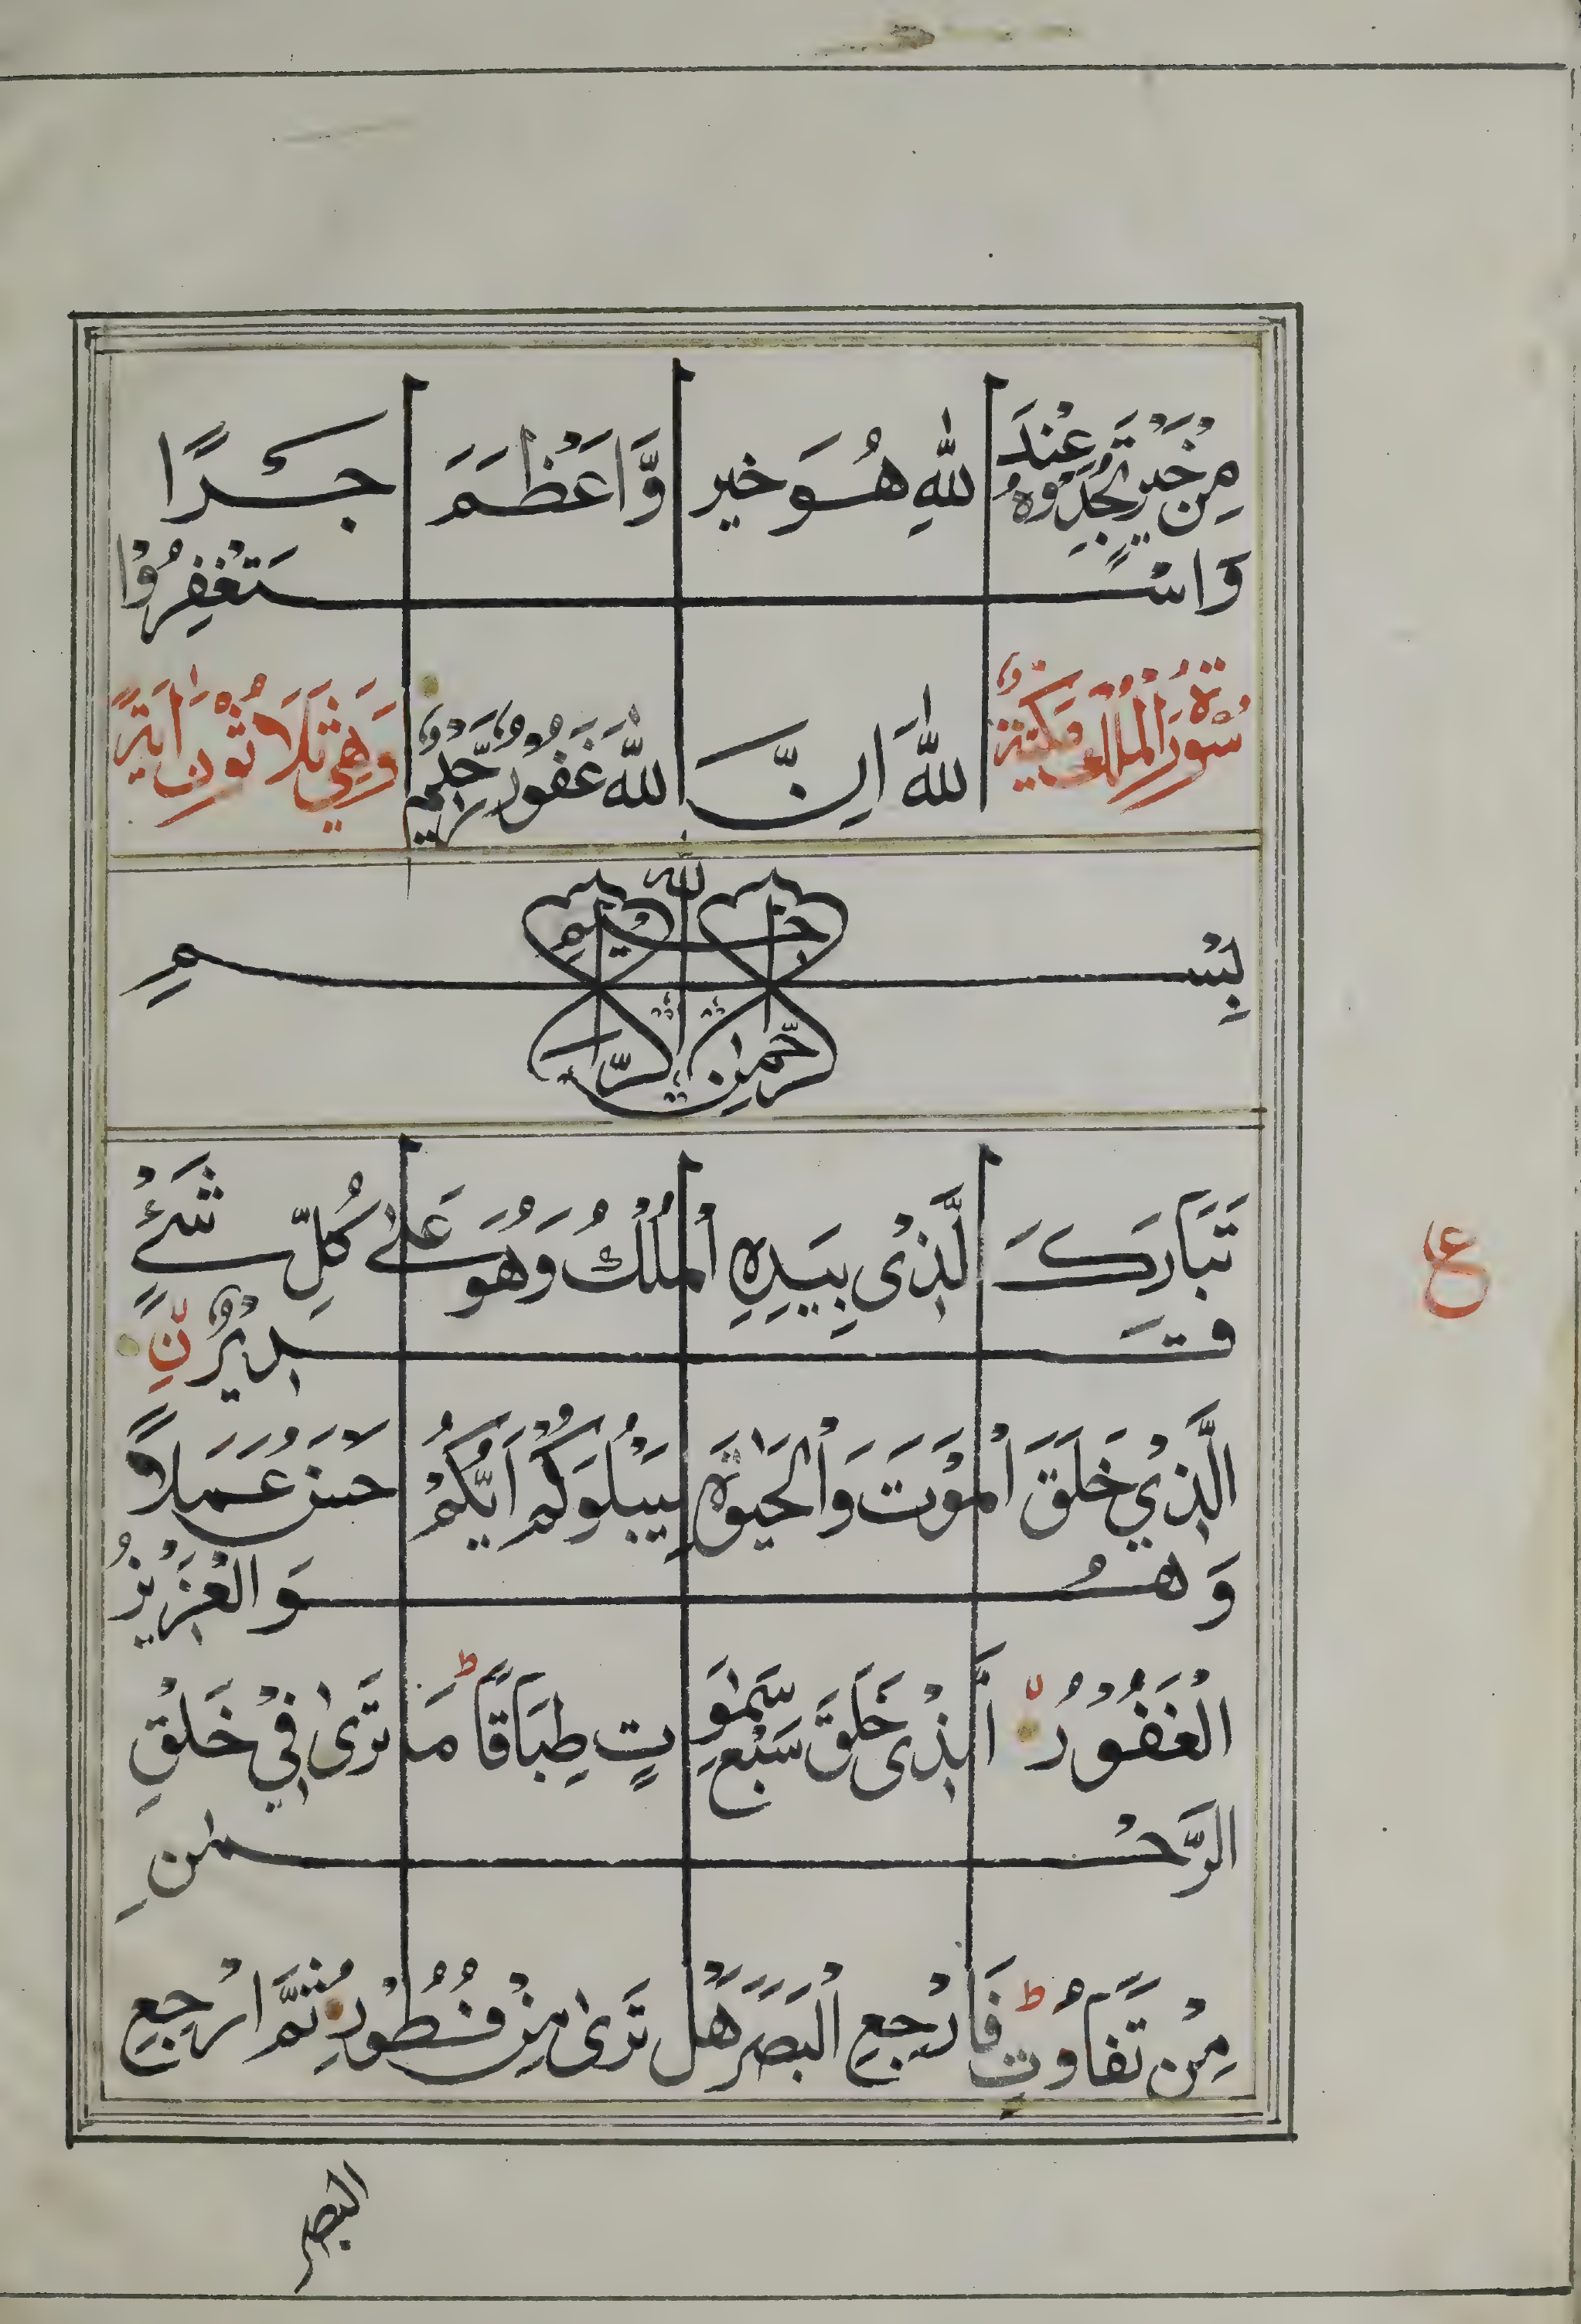 مِنْ خَيْرٍ تَجِدُوْهُ عِنْدَ اللّٰهِ هُوَ خَيْر وَّاَعْظَمَ اَجْرًا
وَاسْتَغْفِرُوْا
سُوْرَةُ الْمُلْكِ مَكِّيَّةٌ اللّٰهَ اِنَّ اللّٰهَ غَفُوْرٌ رَّحِيْمٌ وَهِيَ ثَلَاثُوْنَ اٰيَةً
بِسْمِ اللّٰه الرَّحْمٰنِ الرَّحِيْمِ
تَبَارَكَ الَّذِىْ بِيَدِهِ الْمُلْكُ وَهُوَ عَلٰى كُلِّ شَيْءٍ
قَدِيْرُ نِ
ع
الَّذِيْ خَلَقَ الْمَوْتَ وَالْحَيٰوةَ لِيَبْلُوَكُمْ اَيُّكُمْ اَحْسَنُ عَمَلًا
وَهُوَ الْعَزِيْزُ
الْغَفُوْرُ الَّذِىْ خَلَقَ سَبْعَ سَمٰوٰتٍ طِبَاقًا ط مَا تَرٰى فِيْ خَلْقِ
الرَّحْمٰنِ
مِنْ تَفَاوُتٍ ط فَارْجِعِ الْبَصَرَ هَلْ تَرٰى مِنْ فُطُوْرٍ ثُمَّ ارْجِعِ
البصر